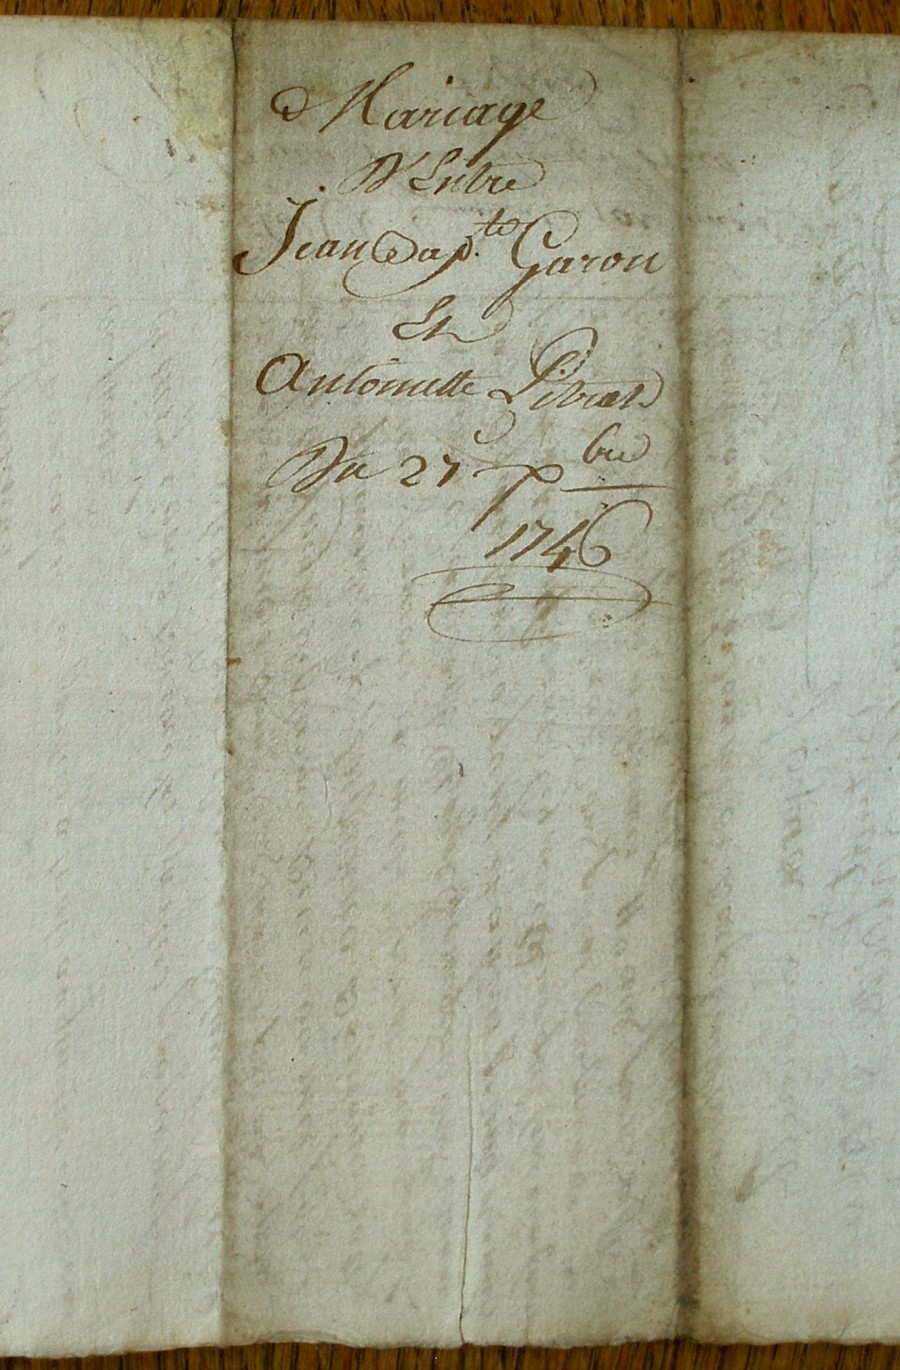 Mariage
D'Entre
Jean Bap.te Garon
Et
Antoinette Pitrat
Du 27 7bre
1746